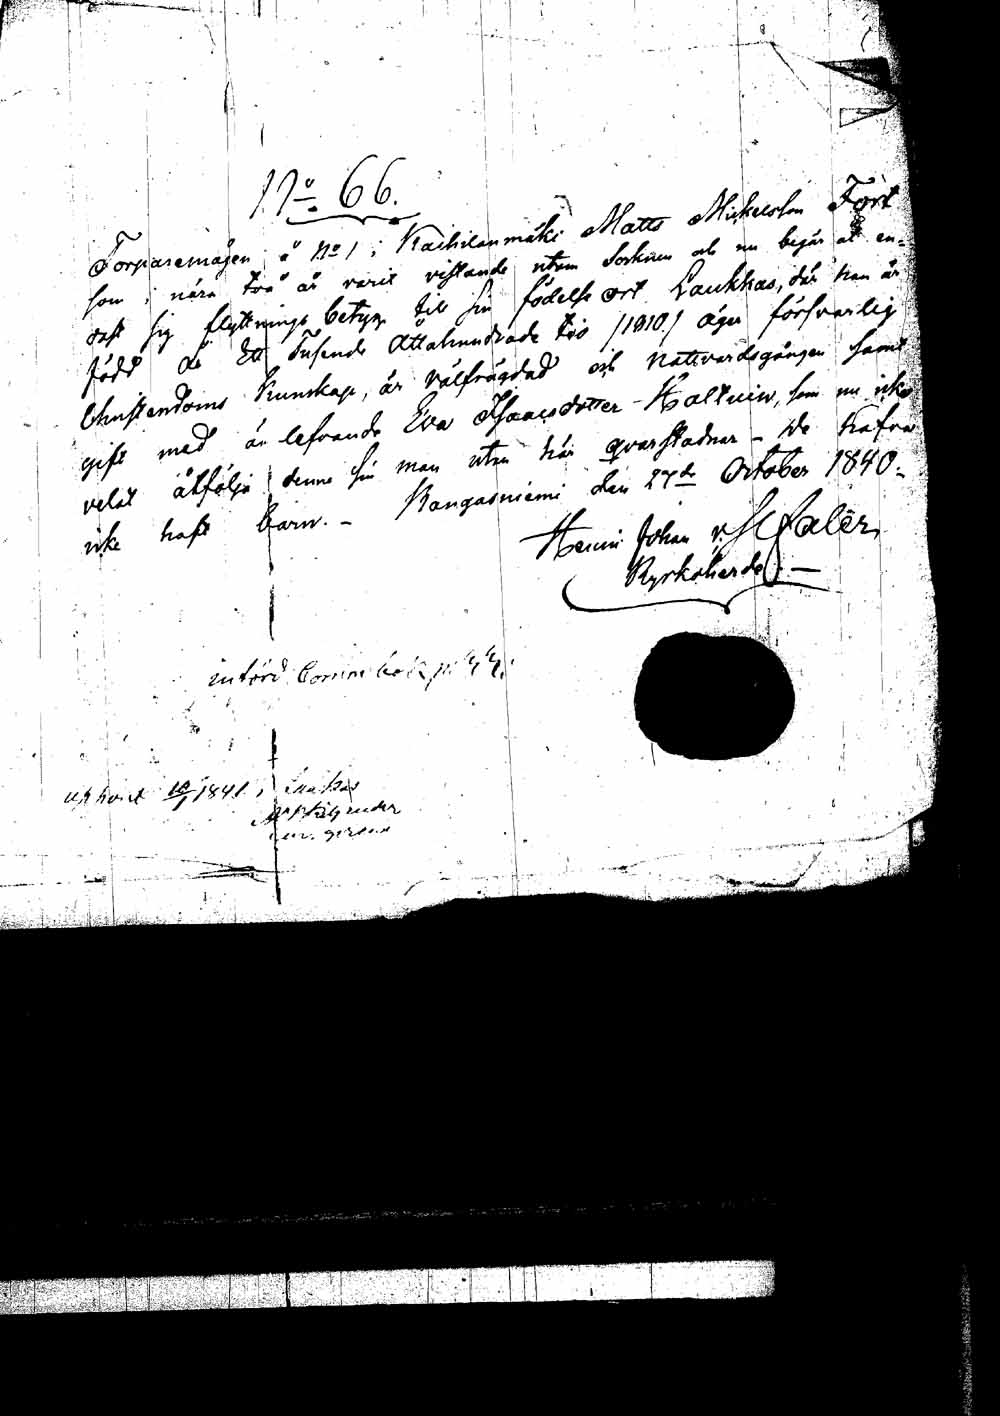 No 66.
Torparemågen å No 1 i Kaihilanmäki Matts Mickelson Tört
som i nära två år varit vistande utom Socknen och nu begär at en-
dast sig flyttnings betyg till sin födelse ort Laukkas, där han är
född år Ett Tusende Åttahundrade tio /1810./ äger försvarlig
Christendoms Kunskap, är välfrägdad och nattvardsgången samt
gift med än lefvande Eva Isaacsdotter Hallnin, som nu icke
velat åtfölja denne sin man utan här qvarstadnar - De hafva
icke haft barn. - Kangasniemi den 27de October 1840.
Henric Johan v.
Kyrkoherde. -
införd Comm bok p.
upvist 10/1 1841. i Laukas